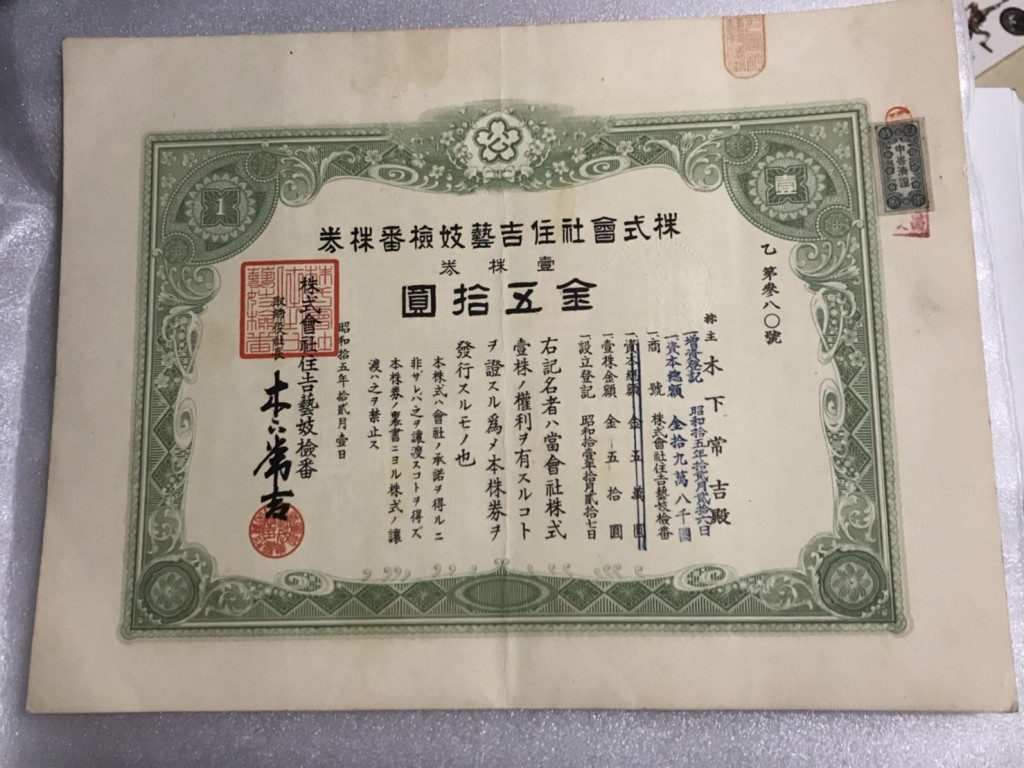 株式會社住吉藝妓檢番株券
壹株券
金五拾圓
壹
1
乙第參八〇號
株主 木下常吉殿
一增資登記 昭和拾五年拾貳月貳拾六日
一資本總額 金拾九萬八千圓
一商號 株式會社住吉藝妓檢番
一資本總額 金五萬圓
一壹株金額 金五拾圓
一設立登記 昭和拾壹年拾月貳拾七日
右記名者ハ當會社株式
壹株ノ權利ヲ有スルコト
ヲ證スル爲メ本株券ヲ
發行スルモノ也
本株式ハ會社ノ承諾ヲ得ルニ
非ザレバ之ヲ讓渡スコトヲ得ズ
本株券ノ裏書ニヨル株式ノ讓
渡ハ之ヲ禁止ス
昭和拾五年拾貳月壹日
株式會社住吉藝妓檢番
取締役社長
木下常吉